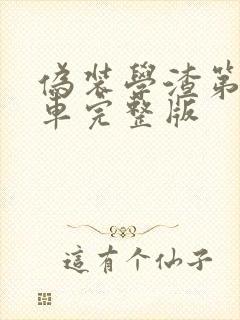 偽装學渣第
車完整版
這有个仙子